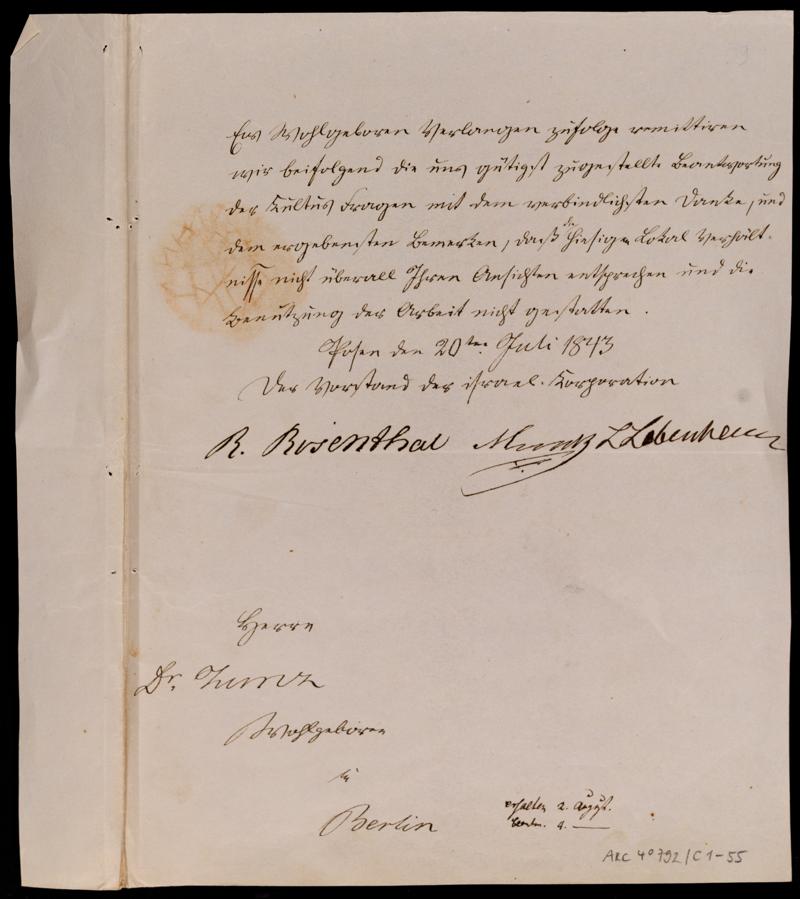 Ew Wohlgeboren Verlangen zufolge remittiren
wir beifolgend die uns gütigst zugestellte Beantwortung
der Kultus Fragen mit dem verbindlichsten Danke, und
dem ergebensten Bemerken, daß die hiesigen Lokal Verhält-
nisse nicht überall Ihren Ansichten entsprechen und die
Benutzung der Arbeit nicht gestatten.
Posen den 20ten Juli 1843
Der Vorstand der israel. Corporation
R. Rosenthal
Herrn
Dr. Zunz
Wohlgeboren
in
Berlin
erhalten 2. August.
beantw. 4. —
ARC 4° 792/C1-55